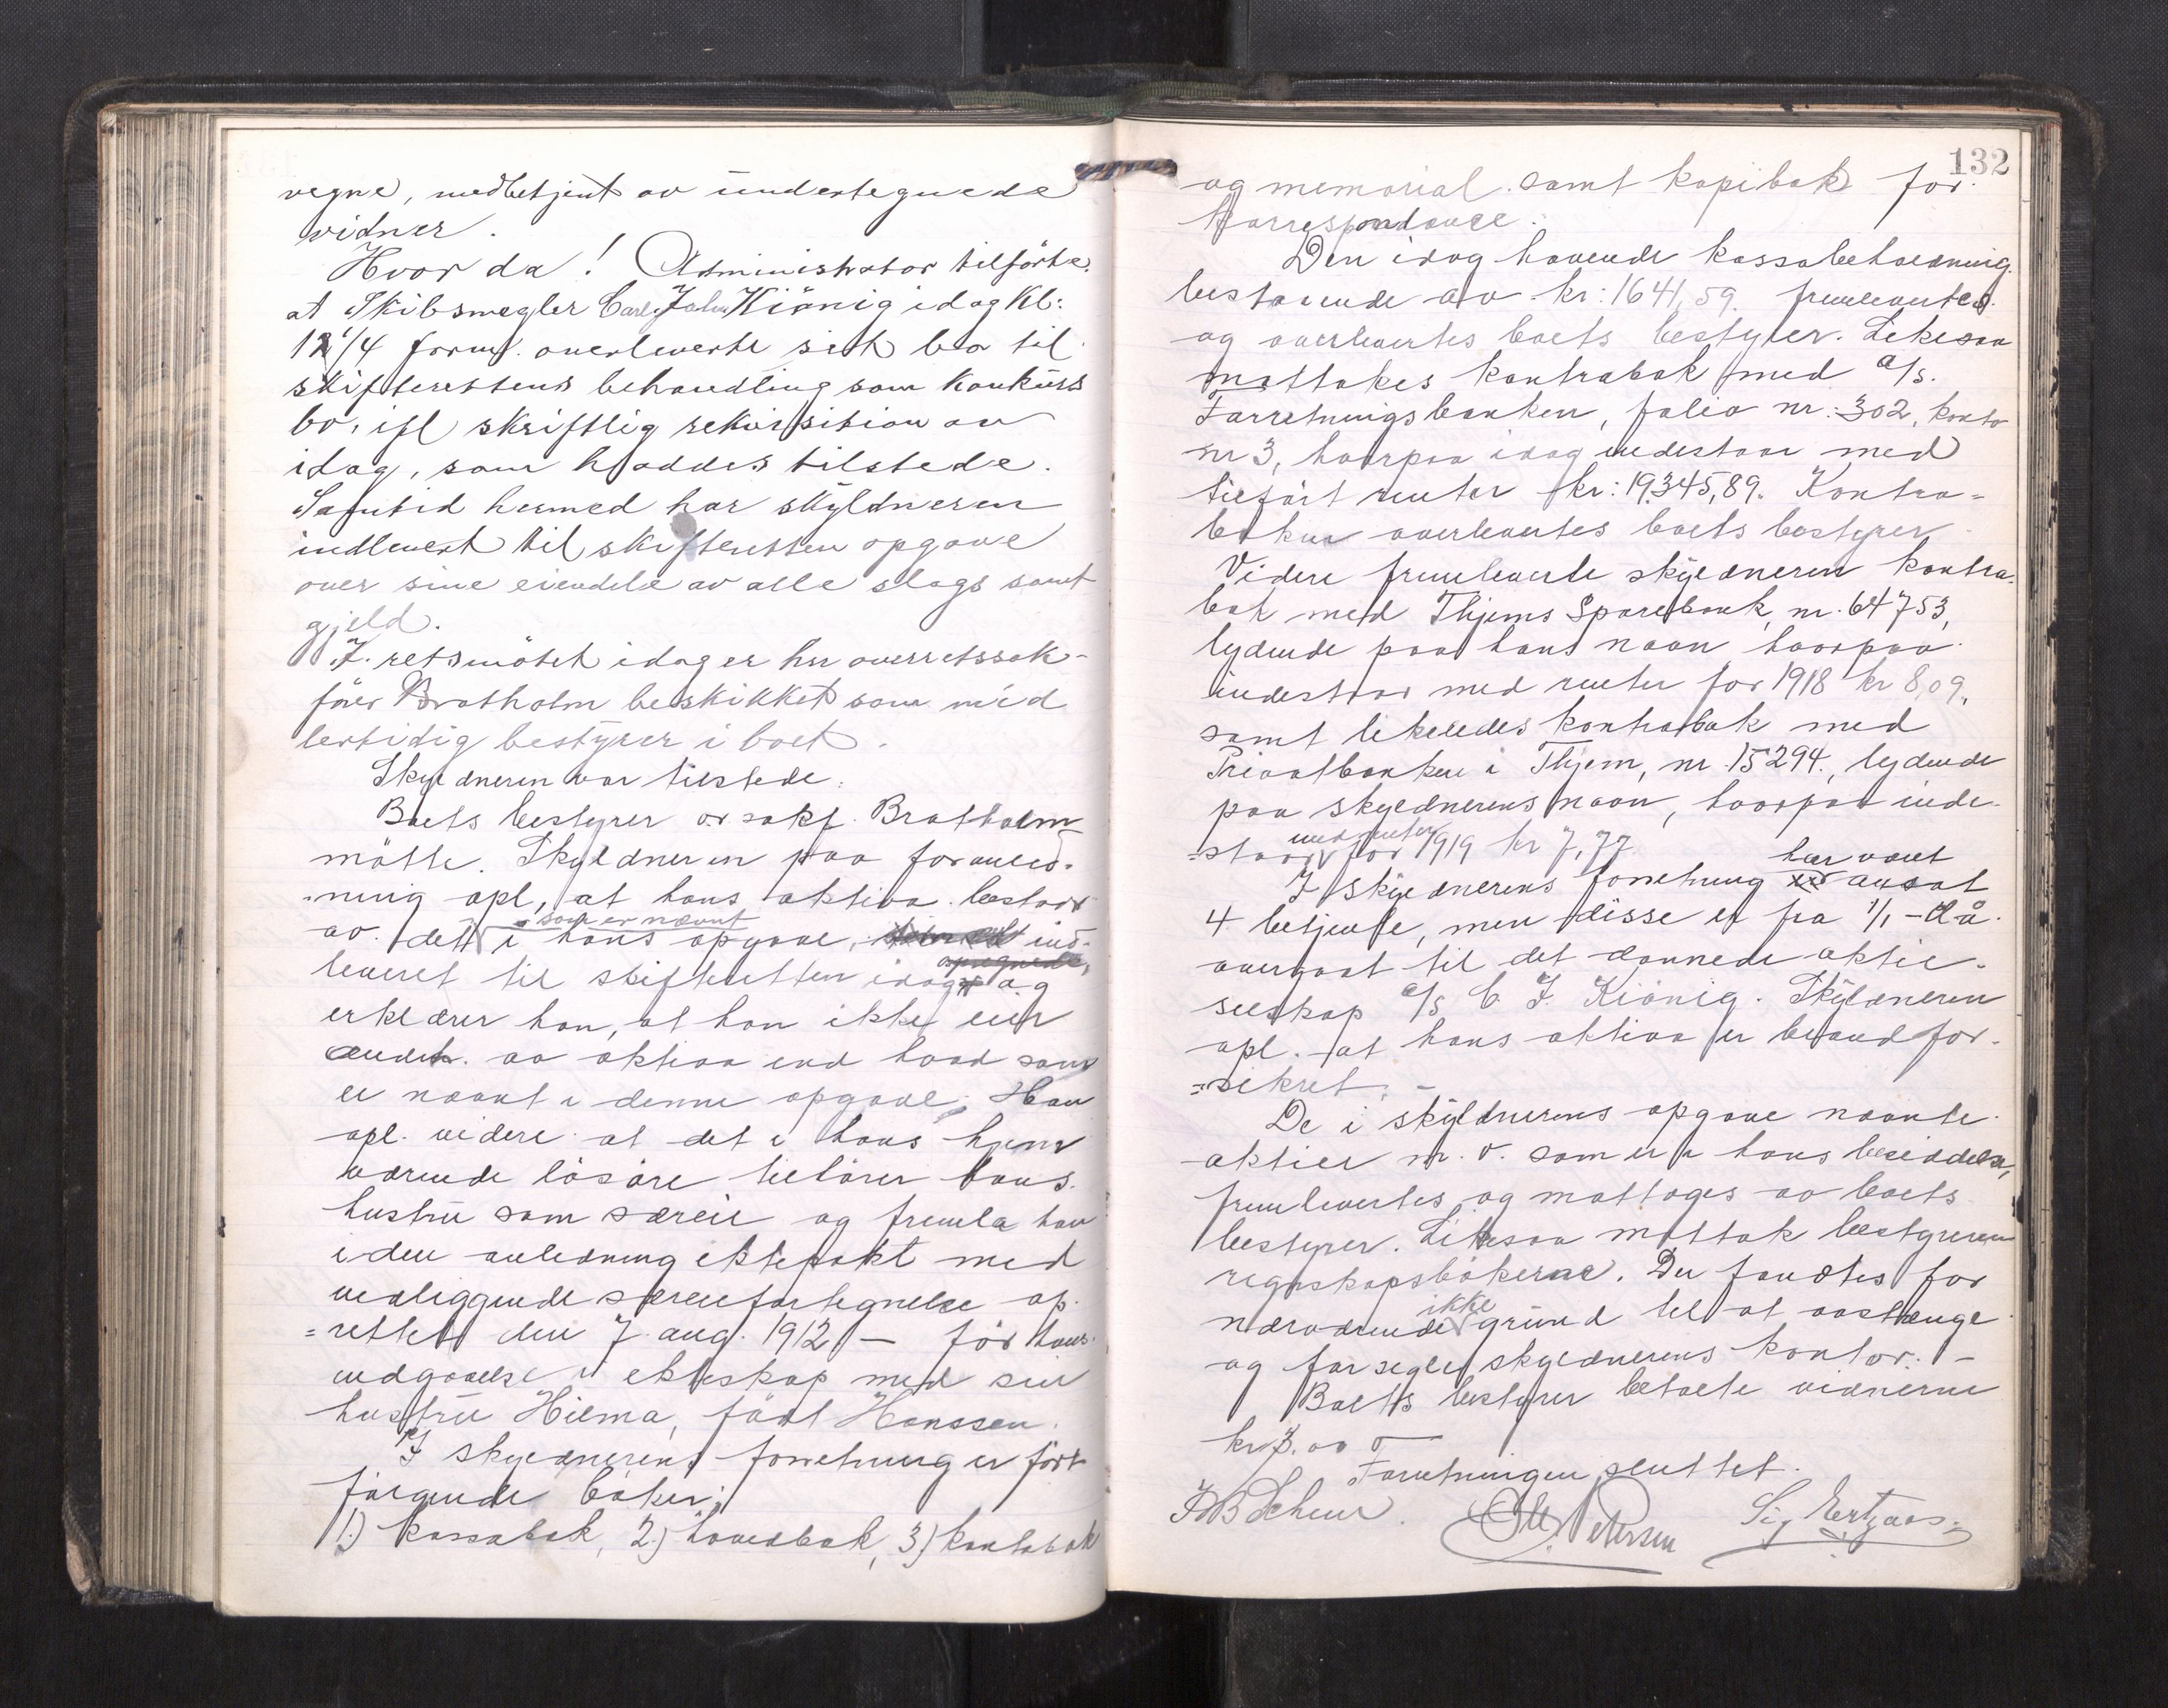 vegne, medbetjent av undertegnede
vidner.
Hvor da! Administrator tilførte
at Skibsmegler Carl John Kiönig idag kl:
12 1/4 form. overleverte sit bo til
skifterettens behandling som konkurs
bo, ifl skriftlig rekvisition av
idag, som haddes tilstede.
Samtid hermed har skyldneren
indlevert til skifteretten opgave
over sine eiendele av alle slags samt
gjeld.
I retsmötet idag er hr overretssak-
förer Bratholm beskikket som mid
lertidig bestyrer i boet.
Skyldneren var tilstede.
Boets bestyrer o.r.sakf. Bratholm
mötte. Skyldneren paa foranled-
ning opl, at hans aktiva bestaar
av det i hans opgave, som er nævnt ind-
leveret til skifteretten idag og
erklærer han, at han ikke eier
andet av aktiva end hvad som
er nævnt i denne opgave. Han
opl. videre at det i hans hjem
værende lösöre tilhörer hans
hustru som særeie og fremla han
i den anledning ektepakt med
vedliggende særeiefortegnelse op-
rettet den 7 aug. 1912 - för hans
indgaaelse i ekteskap med sin
hustru Hilma, född Hanssen.
I skyldnerens forretning er fört
fölgende böker:
1.) kassabok, 2.) hovedbok, 3.) kontobok
132
og memorial samt kopibok for
korrespondance.
Den idag havende kassabeholdning
bestaaende av kr: 1641,59 fremlevertes
og overlevertes boets bestyrer. Likesaa
mottokes kontrabok med A/S.
Forretningsbanken, folio nr: 302, konto
nr 3, hvorpaa idag indestaar med
tilfört renter kr: 19.345,89. Kontra-
boken overlevertes boets bestyrer.
Videre fremleverte skyldneren kontra-
bok med Thjems Sparebank, nr. 64753,
lydende paa hans navn hvorpaa
indestaar med renter for 1918 kr 8,09,
samt likeledes kontrabok med
Privatbanken i Thjem, nr 15294, lydende
paa skyldnerens navn, hvorpaa inde-
staar med renter for 1919 kr 7,77
I skyldnerens forretning har vært ansat
4 betjente, men disse er fra 1/1 - d.å.
overgaat til det dannede aktie-
selskap A/S C. J. Kiönig. Skyldneren
opl. at hans aktiva er brandfor-
sikret. -
De i skyldnerens opgave nævnte
aktier m.v. som er i hans besiddelse,
fremlevertes og mottoges av boets
bestyrer. Likesaa mottok bestyreren
regnskapsbökerne. Der fandtes for
nærværende ikke grund til at avstænge
og forsegle skyldnerens kontor. -
Boets bestyrer betalte vidnerne
kr 3.00
Forretningen sluttet.
Ole Petersen